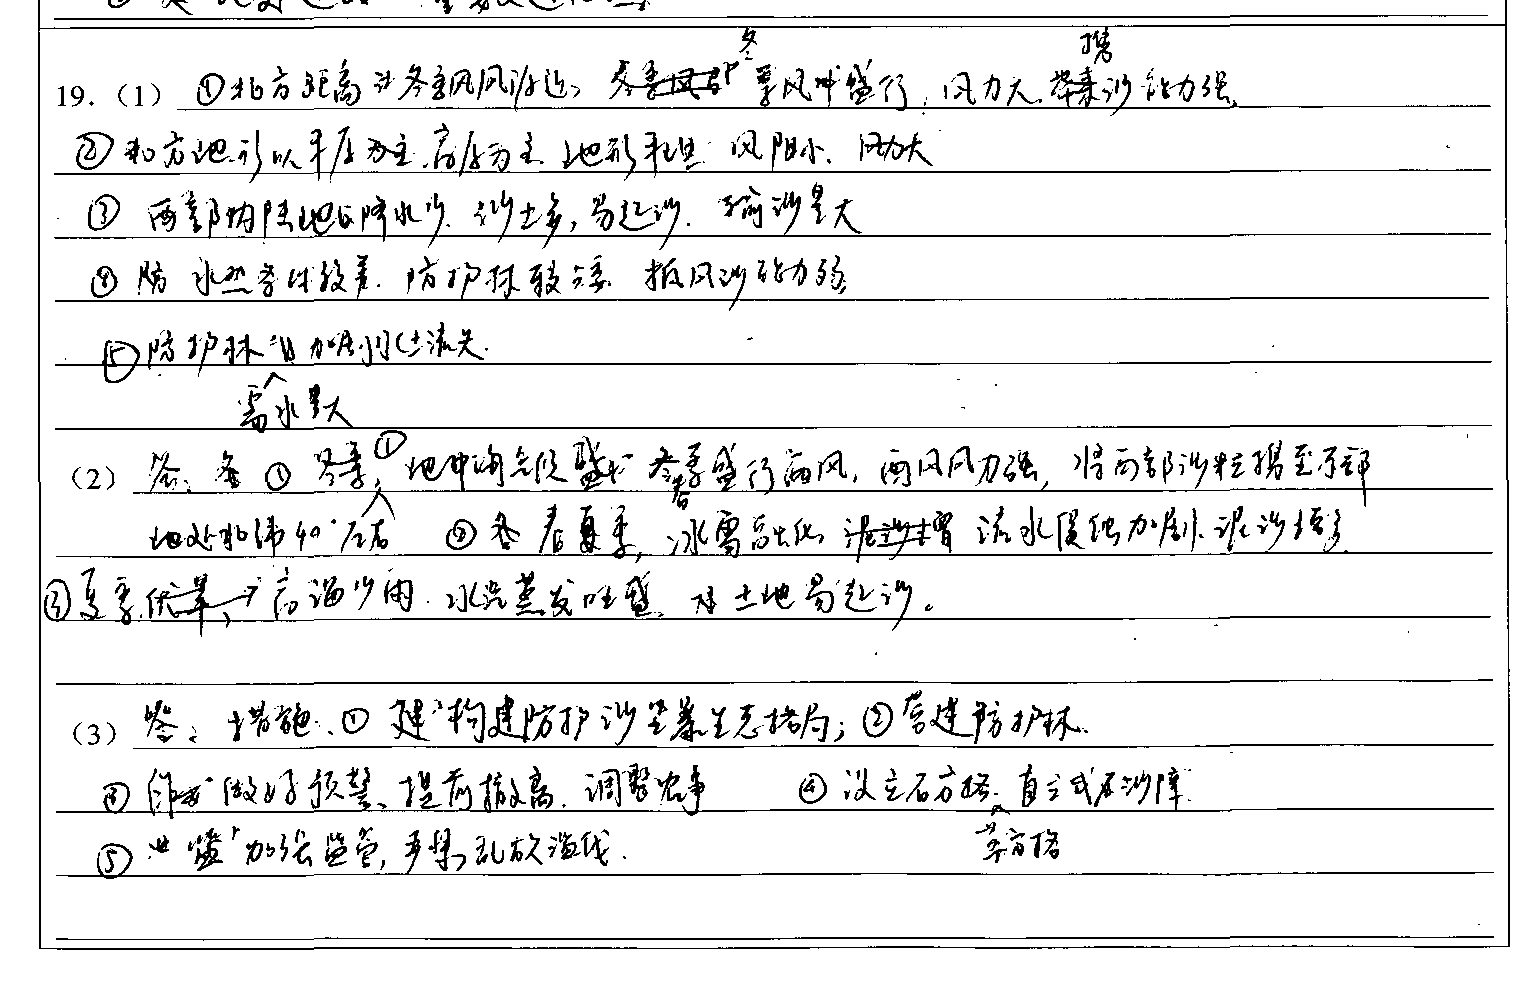 19.（1）①北方距离冬季风风源近，冬季风盛行，风力大，携沙能力强
②北方地形以平原为主，高原为主，地形平坦，风阻小，风力大
③西部内陆地区降水少，沙土多，易起沙，输沙量大
④水热条件较差，防护林较矮，抵风沙能力弱
⑤防护林加剧水土流失.
需水量大
（2）答：①冬季，地中海气候冬季盛行西风，西风风力强，将西部沙粒携至东部
地处北纬40°左右 ②春夏季，冰雪融化，流水侵蚀加剧，泥沙增多
③夏季高温少雨，水汽蒸发旺盛，土地易起沙。
（3）答：措施：①构建防护沙尘暴生态格局；②营建防护林.
③做好预警，提前撤离，调整农事 ④设立石方格，直立式沙障.
草方格
⑤加强监管，严禁乱砍滥伐.